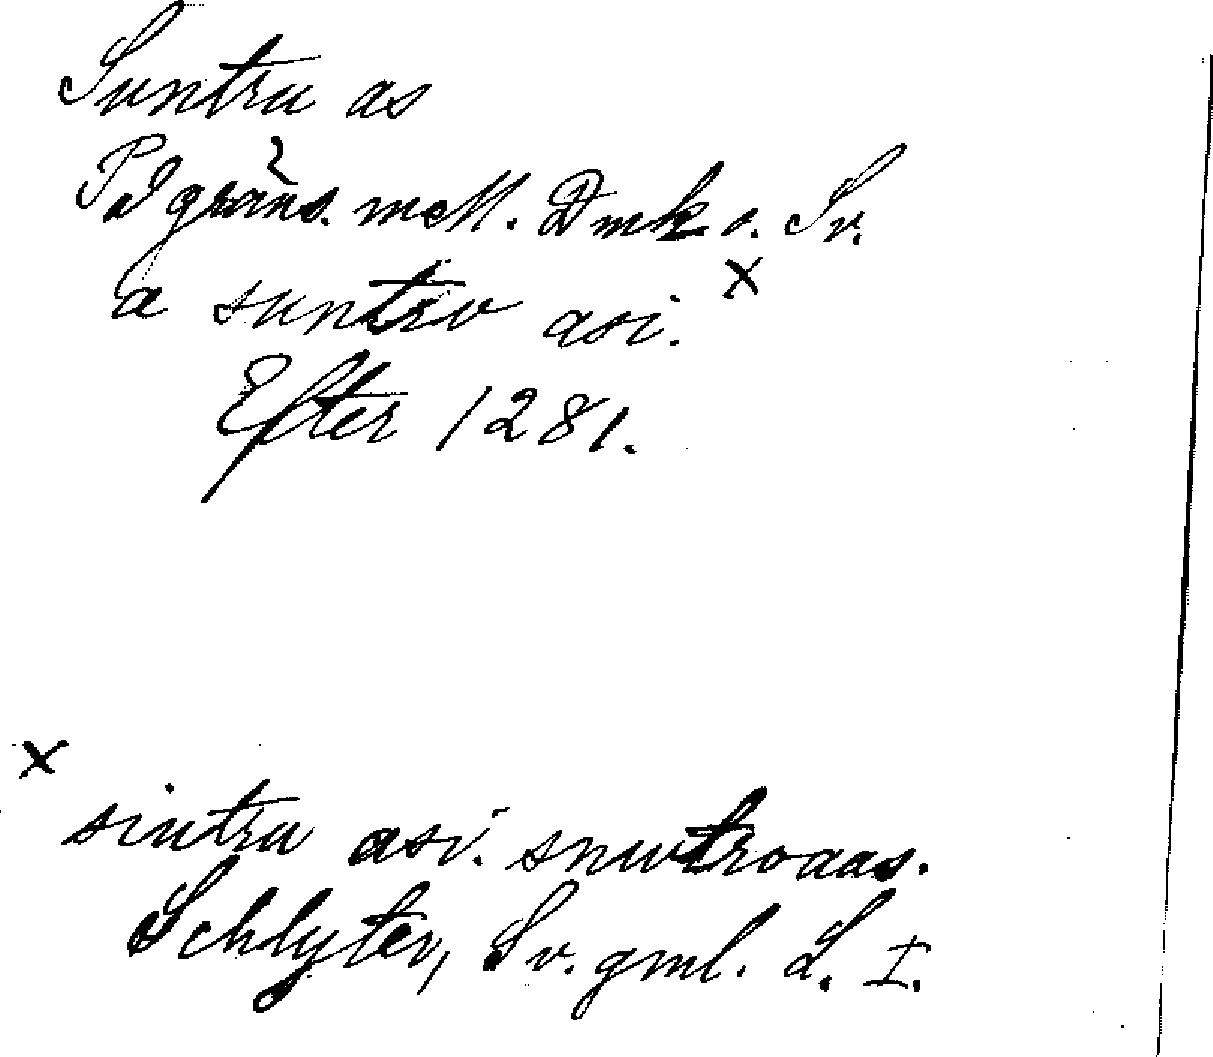 Suntru as
På gräns. mell. Dmk o. Sv.
a suntro asi. x
Efter 1281.
x
sintru asi. snwtroaas.
Schlyter, Sv. gml. L. I.